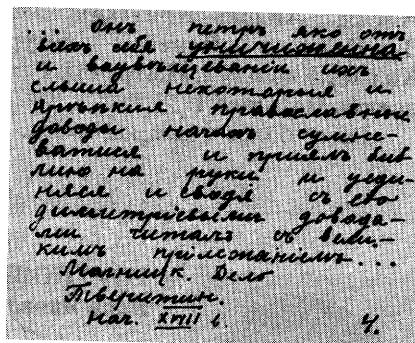 ... онъ петръ яко отъ
всѣхъ себя уничижонна
и въ увѣщеваніи ихъ
слыша некоторыя и
крѣпкия православныи
доводы началъ сумне-
ватися и приялъ биб-
лию на руки и уеди-
няяся и сводя съ его
димитріевыми довода-
ми читалъ съ вели-
кимъ прилѣжаніемъ...
Магницк. Дело
Тверитин.
нач. XVIII в. 4.